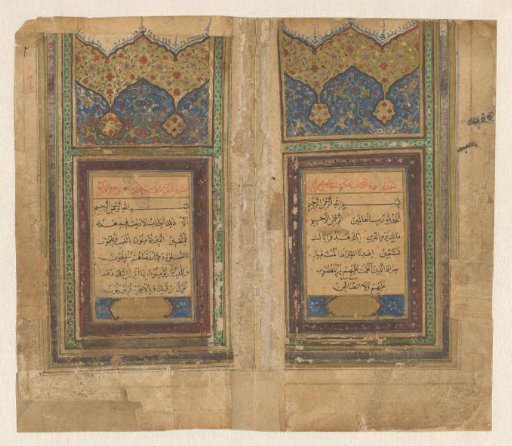 بسم الله الرحمن الرحيم
الحمد لله رب العالمين الرحمن الرحيم
مالك يوم الدين إياك نعبد وإياك
نستعين اهدنا الصراط المستقيم
صراط الذين أنعمت عليهم غير المغضوب
عليهم ولا الضالين
بسم الله الرحمن الرحيم
الم ذلك الكتاب لا ريب فيه هدى
للمتقين الذين يؤمنون بالغيب ويقيمون
الصلوة ومما رزقناهم ينفقون
والذين يؤمنون بما أنزل إليك وما
أنزل من قبلك وبالآخرة هم يوقنون